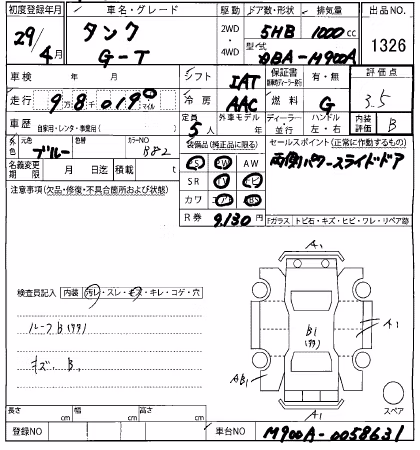 初度登録年月 車名・グレード 駆動 ドア数・形状 排気量 出品NO.
29年 4月 タンク G-T 2WD・4WD 5HB 1000cc 1326
型式 DBA-M900A
車検 年 月 シフト IAT 保証書 有・無 評価点
走行 9万8千019 マイル 冷房 AAC 燃料 G 3.5
車歴 自家用・レンタ・事業用( ) 定員 5人 外車モデル ディーラー・並行 ハンドル 左・右 内装評価 B
外色 元色 ブルー 色替 カラーNO B82 装備品(純正品に限る) セールスポイント(正常に作動するもの)
PS PW AW 両側パワースライドドア
名義変更期限 月 日迄 積載 t SR
注意事項(欠品・修復・不具合箇所および状態) カワ
R券 9,130円 Fガラス トビ石・キズ・ヒビ・ワレ・リペア跡
A1
検査員記入 内装 汚レ・スレ・キズ・キレ・コゲ・穴
ルーフB(タタ)
B1 A1
キズ. B.
AB1
スペア
長さ cm 幅 cm 高さ cm A1
登録NO 車台NO M900A-0058631